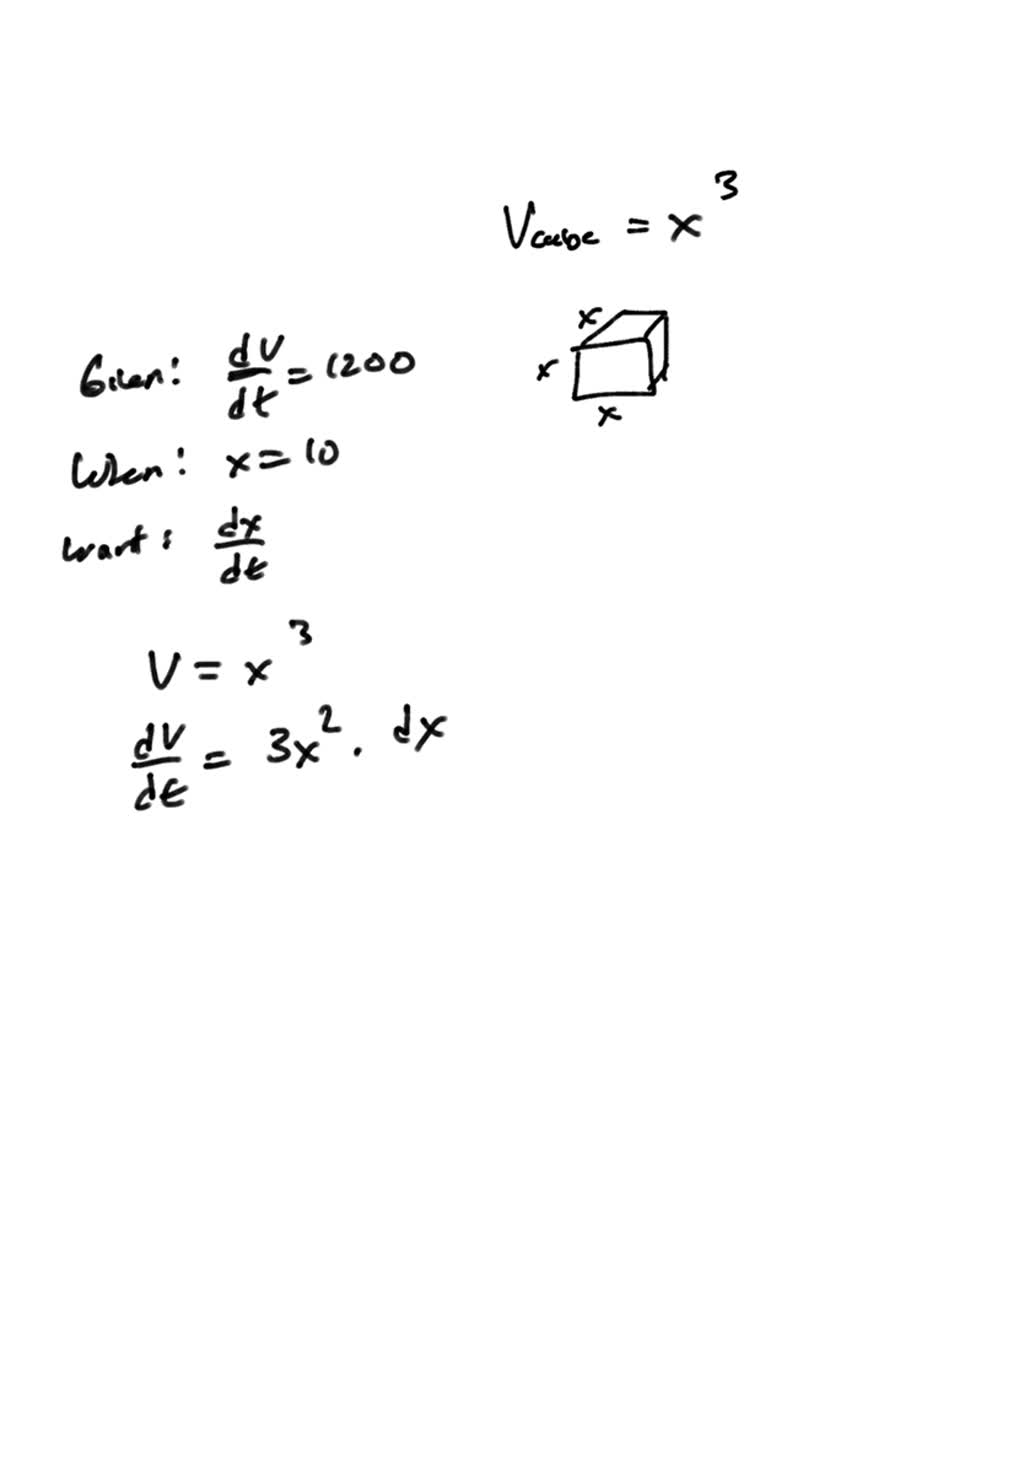 V_cube = x^3
x
x
x
Given: dV/dt = 1200
When: x = 10
Want: dx/dt
V = x^3
dV/dt = 3x^2 · dx